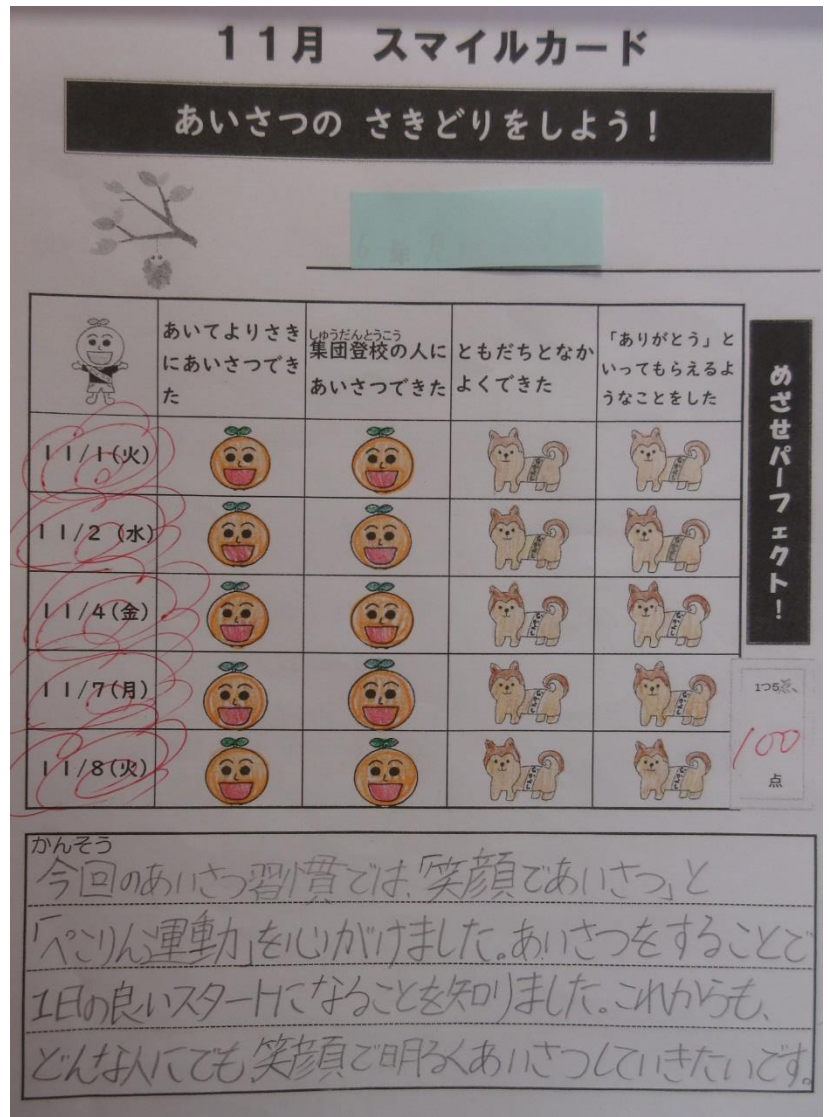 11月 スマイルカード
あいさつの さきどりをしよう！
あいてよりさき
にあいさつでき
た
しゅうだんとうこう
集団登校の人に
あいさつできた
ともだちとなか
よくできた
「ありがとう」と
いってもらえるよ
うなことをした
めざせパーフェクト！
11/1(火)
11/2 (水)
11/4(金)
11/7(月)
11/8(火)
1つ5点、
100
点
かんそう
今回のあいさつ習慣では、「笑顔であいさつ」と
「ぺこりん運動」を心がけました。あいさつをすることで
1日の良いスタートになることを知りました。これからも、
どんな人にでも、笑顔で明るくあいさつしていきたいです。